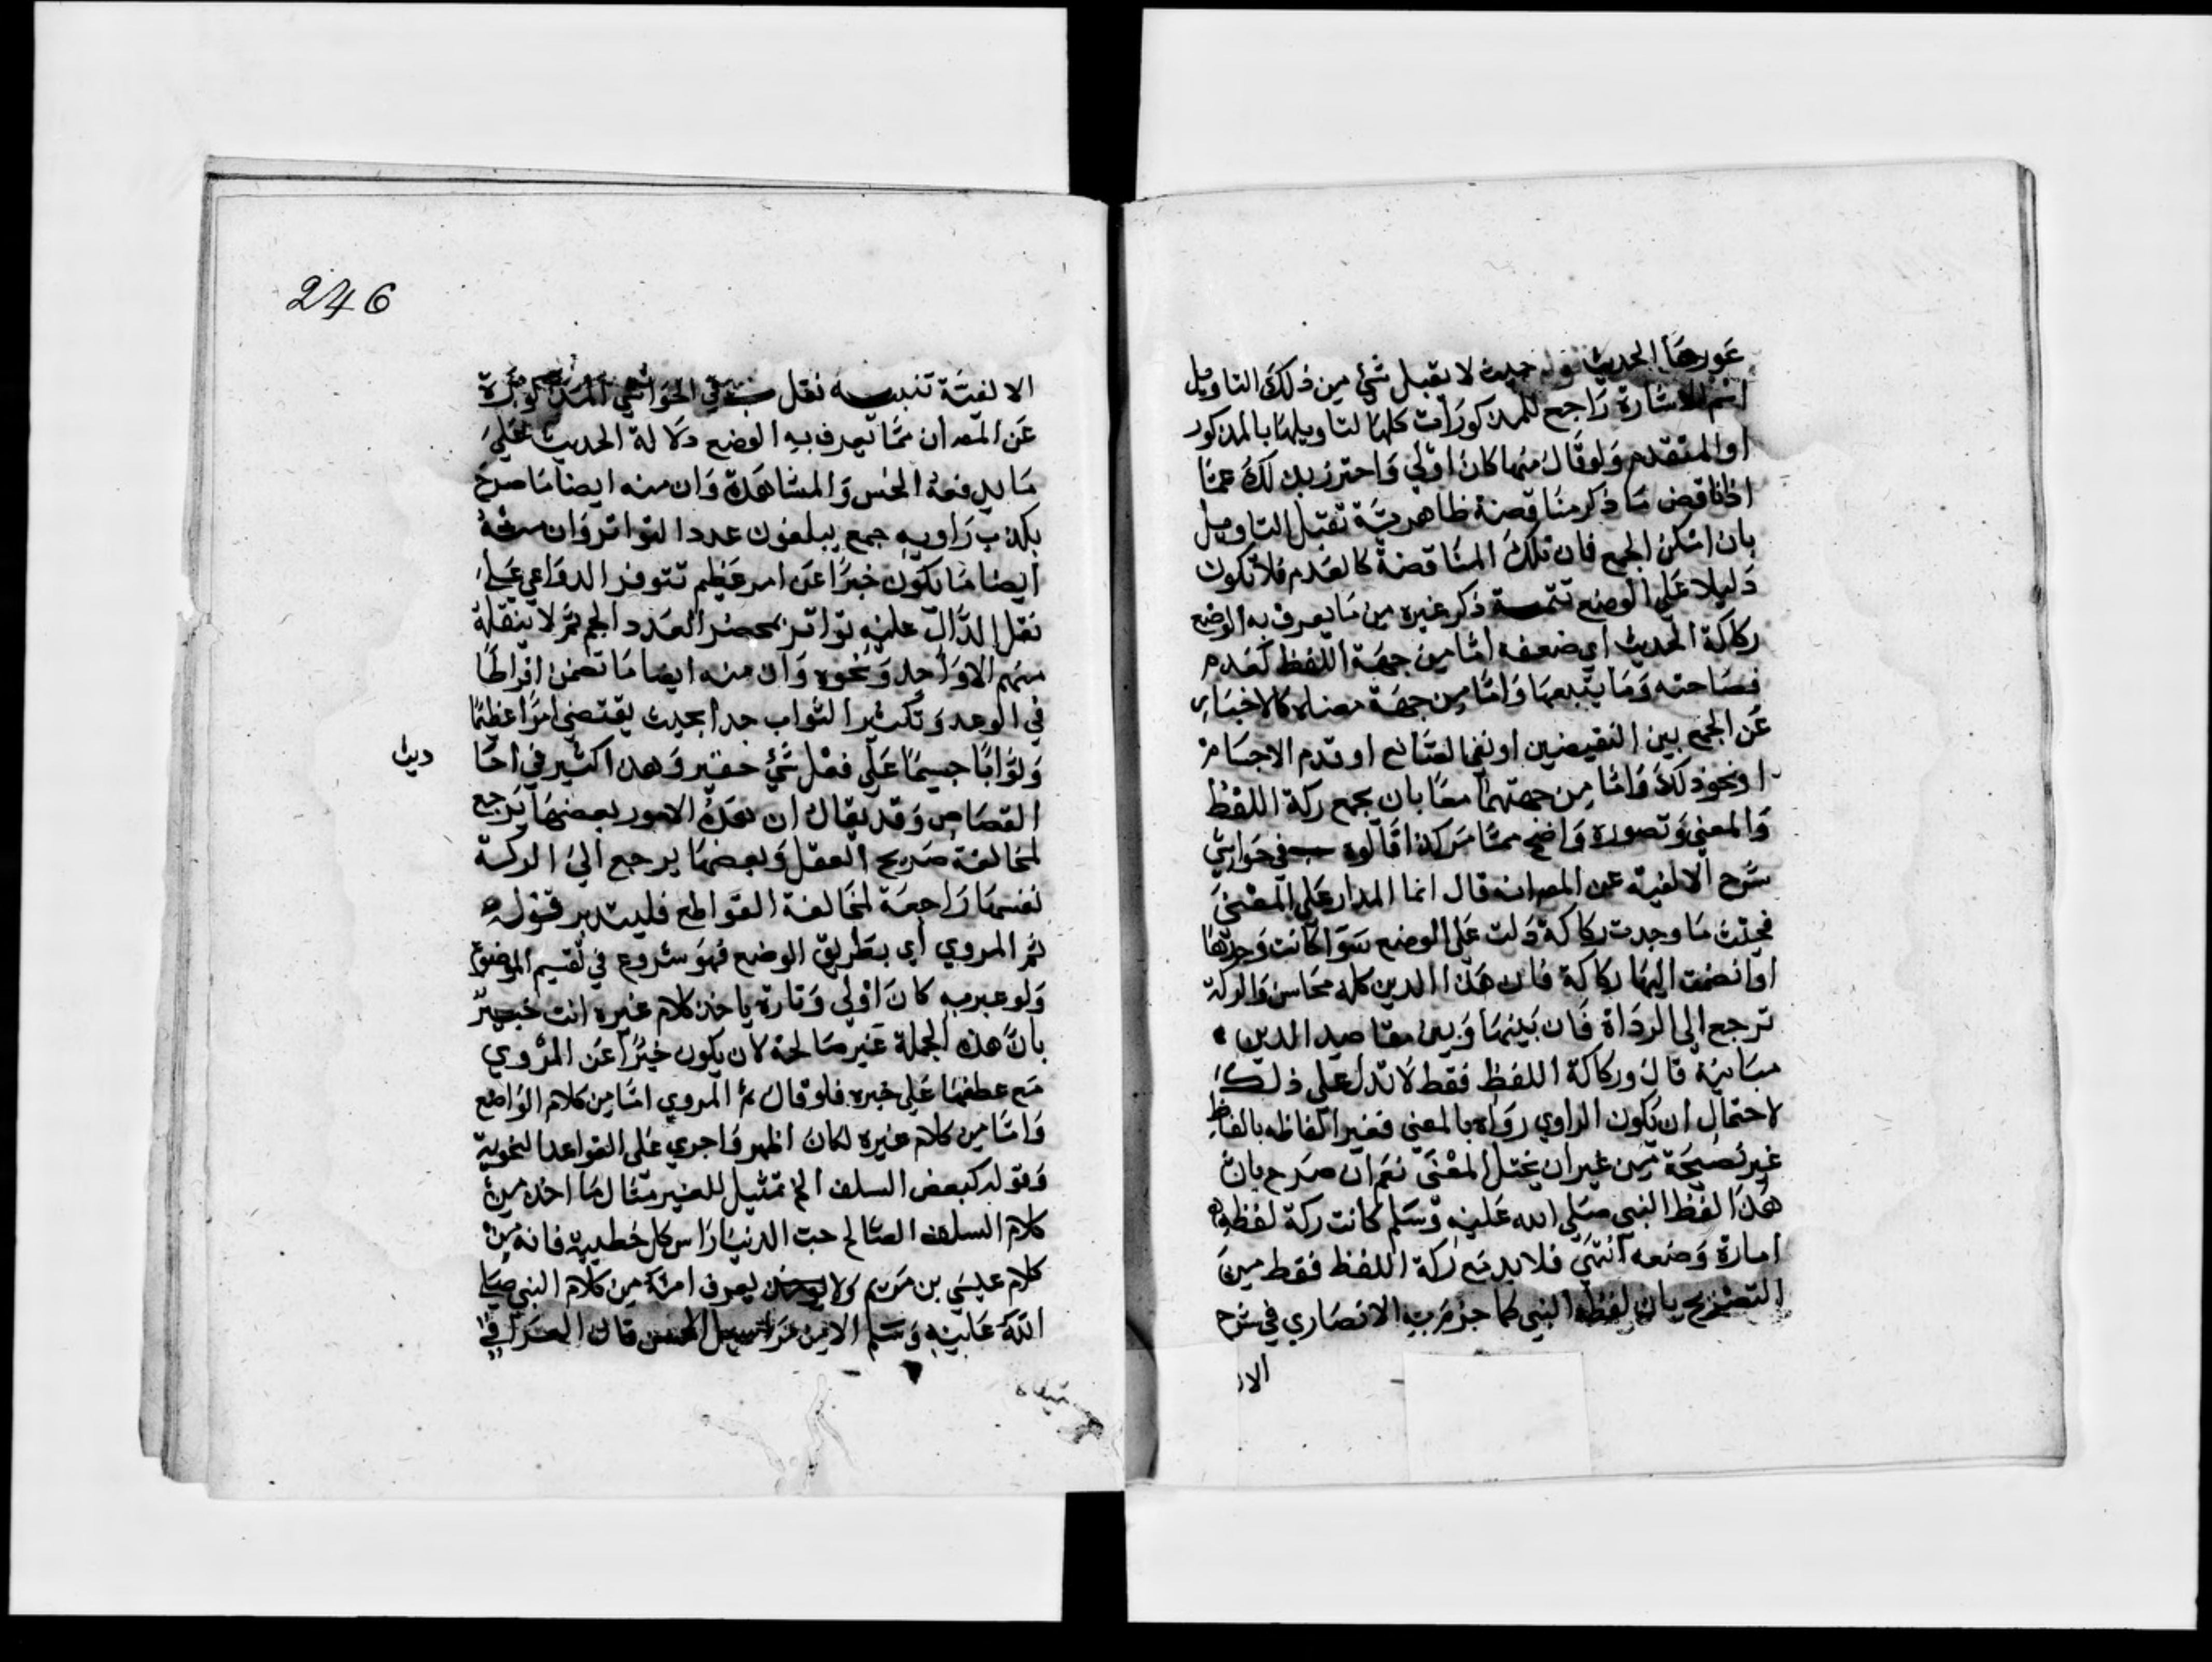 عورها الحديث قوله حيث لا يقبل شيء من ذلك التاويل
اسم الاشارة راجع للمذكورات كلها لتاويلها بالمذكور
او المتقدم ولو قال منها كان اولي واحترز بذلك عما
اذا ناقض ما ذكر مناقضة ظاهرية تقبل التاويل
بان امكن الجمع فان تلك المناقضة كالعدم فلا تكون
دليلا علي الوضع تتمة ذكر غيره من ما يعرف به الوضع
ركاكة الحديث اي ضعفه اما من جهة اللفظ كعدم
فصاحته وما يتبعها واما من جهة معناه كالاخبار
عن الجمع بين النقيضين او نفي الصانع او قدم الاجسام
او نحو ذلك واما من جهتهما معا بان يجمع ركة اللفظ
والمعني وتصوره واضح مما مر كذا قالوه في حواشي
شرح الالفية عن المص انه قال انما المدار علي المعني
فحيث ما وجدت ركاكة دلت علي الوضع سوا كانت وحدها
او انضمت اليها ركاكة فان هذا الدين كله محاسن والركة
ترجع الي الرداة فان بينهما وبين مقاصد الدين
مباينة قال وركاكة اللفظ فقط لا تدل علي ذلك
لاحتمال ان يكون الراوي رواه بالمعني فغير الفاظه بالفاظ
غير فصيحة من غير ان يختل المعني نعم ان صرح بان
هذا لفظ النبي صلي الله عليه وسلم كانت ركة لفظه
امارة وضعه انتهي فلا بد مع ركة اللفظ فقط من
التصريح بان لفظه النبي كما جزم به الانصاري في شرح
الالفية تنبيه نقل في الحواشي المذكورة
عن المص ان مما يعرف به الوضع دلالة الحديث علي
ما يدفعه الحس والمشاهدة وان منه ايضا ما صرح
بكذب راويه جمع يبلغون عدد التواتر وان منه
ايضا ما يكون خبرا عن امر عظيم تتوفر الدواعي علي
نقل الدال عليه تواتر بمحضر العدد الجم ثم لا ينقله
منهم الا واحد ونحوه وان منه ايضا ما تضمن افراطا
في الوعد وتكثير الثواب جدا بحيث يقتضي امرا عظيما
وثوابا جسيما علي فعل شيء حقير وهذا كثير في احا
ديث
القصاص وقد يقال ان هذه الامور بعضها يرجع
لمخالفة صريح العقل وبعضها يرجع الي الركة
نفسها راجعة لمخالفة القواطع فليتدبر قوله
ثم المروي اي بطريق الوضع فهو شروع في تقسيم الموضوع
ولو عبر به كان اولي وتارة ياخذ كلام غيره انت خبير
بان هذه الجملة غير صالحة لان يكون خبرا عن المروي
مع عطفها علي خبره فلو قال ثم المروي اما من كلام الواضع
واما من كلام غيره لكان اظهر واجري علي القواعد النحوية
وقوله كبعض السلف الخ تمثيل للغير مثال ما اخذ من
كلام السلف الصالح حب الدنيا راس كل خطيية فانه من
كلام عيسي بن مريم ولا يعرف انه من كلام النبي صلي
الله عليه وسلم الا من مراسيل الحسن قال العراقي